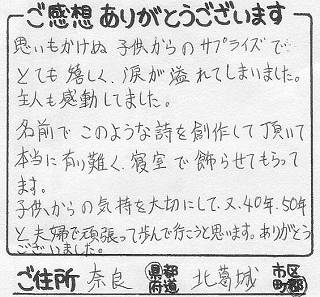 ご感想 ありがとうございます
思いもかけぬ 子供からの サプライズで
とても嬉しく、涙が溢れてしまいました。
主人も感動してました。
名前で このような詩を創作して頂いて
本当に有り難く、寝室で飾らせてもらって
ます。
子供からの気持を大切にして、又、40年、50年
と 夫婦で頑張って歩んで行こうと思います。ありがとう
ございました。
ご住所 奈良 県都府道 北葛城 市区町郡